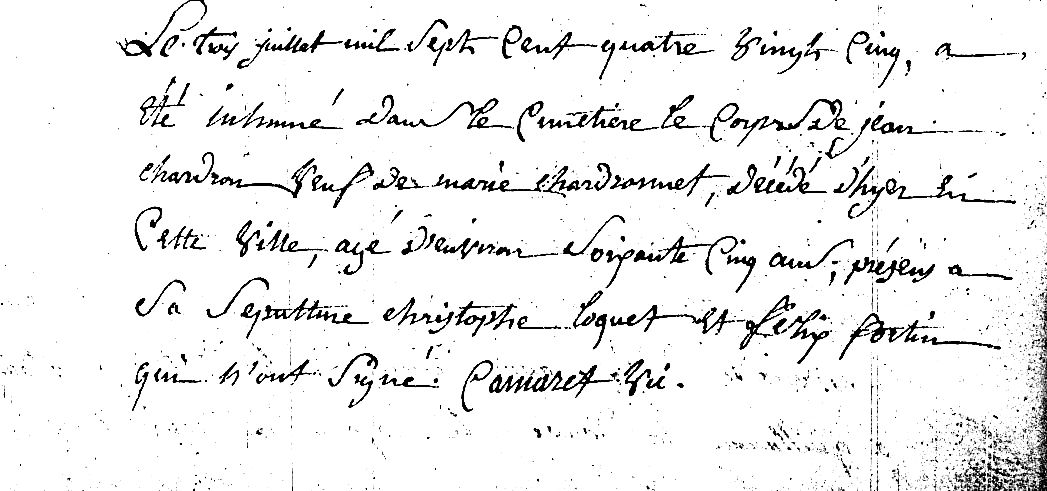 Le trois juillet mil sept cent quatre vingt cinq, a
été inhumé dans le cimetière le corps de jean
chardron veuf de marie chardronnet, décédé d'hyer en
cette ville, agé d'environ soixante cinq ans; présens a
sa sepulture christophe loquet et félix fortin
qui n'ont signé. Camaret vic.